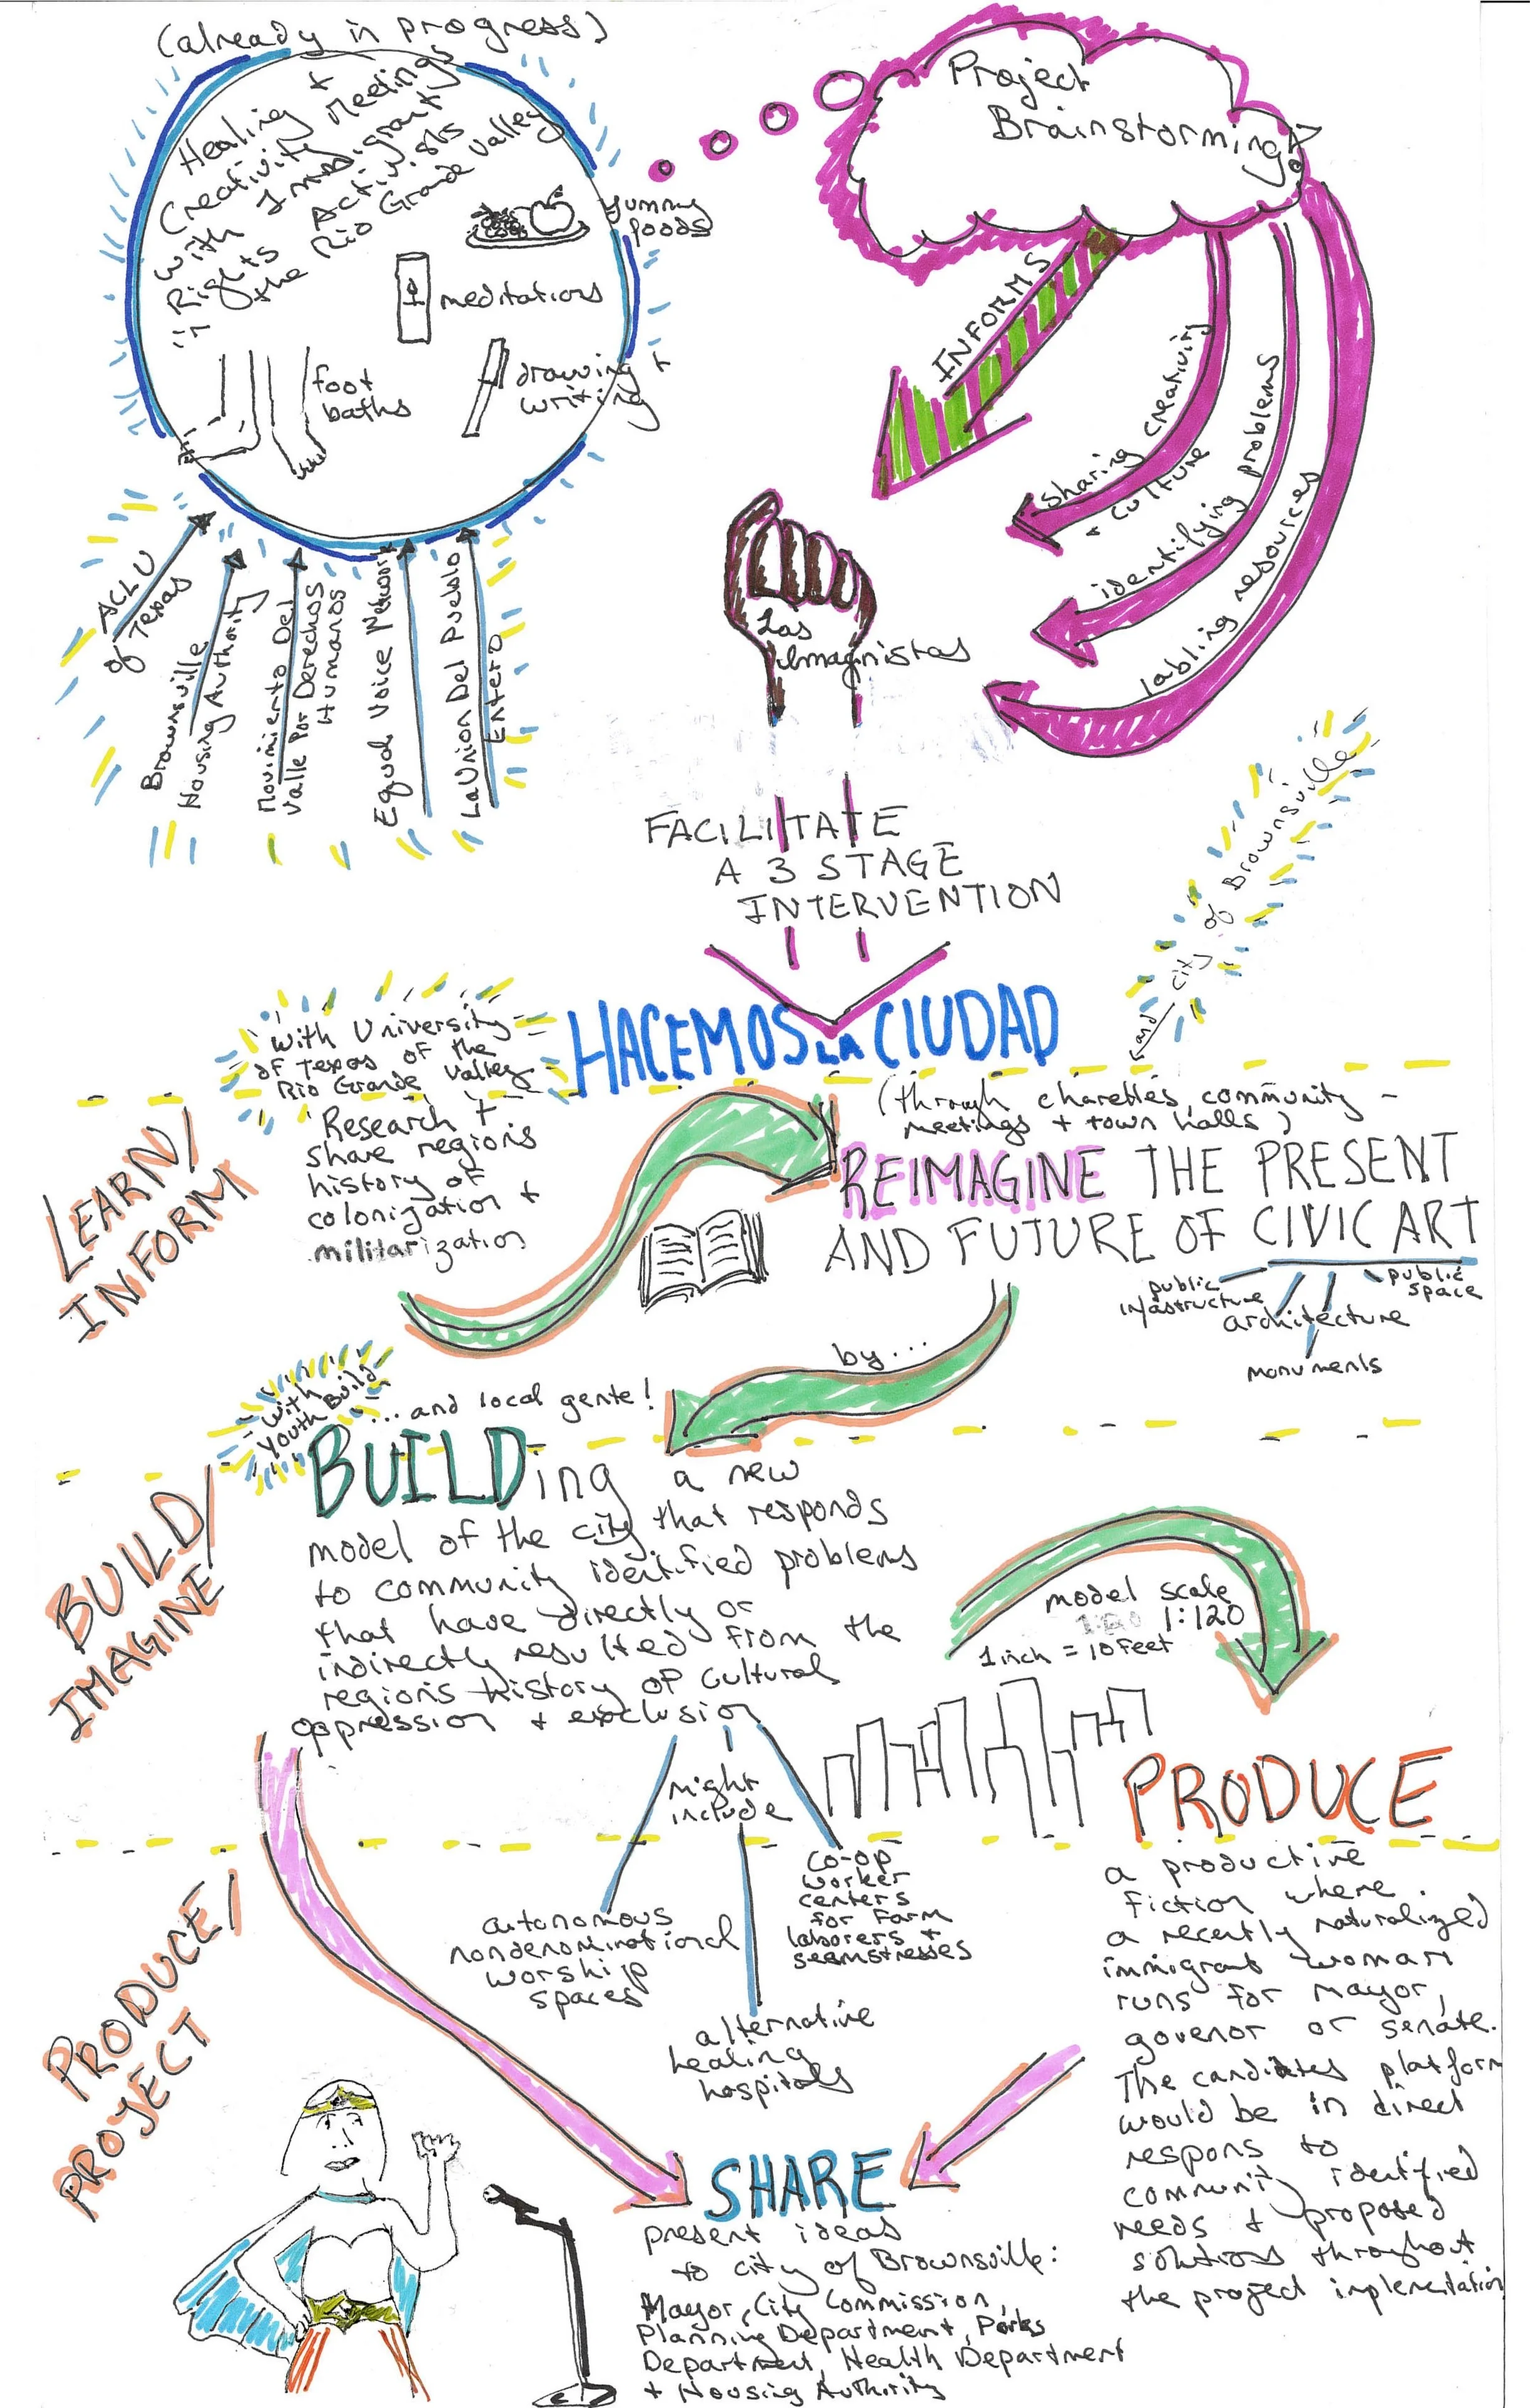 (already in progress)
Healing +
Creativity Meetings
with Immigrant
Rights Activists
in the Rio Grande Valley
yummy
foods
meditations
foot
baths
drawing +
writing
Project
Brainstorming
INFORMS
sharing creativity
+ culture
identifying problems
tabling resources
ACLU
of Texas
Brownsville
Housing Authority
Movimiento Del
Valle Por Derechos
Humanos
Equal Voice Network
La Union Del Pueblo
Entero
Las
Imaginistas
FACILITATE
A 3 STAGE
INTERVENTION
HACEMOS LA CIUDAD
and city of Brownsville
with University
of Texas of the
Rio Grande Valley
LEARN/
INFORM
Research +
share regions
history of
colonization +
militarization
(through charettes, community -
meetings + town halls)
REIMAGINE THE PRESENT
AND FUTURE OF CIVIC ART
public
infastructure
architecture
monuments
public
space
by...
with
Youth Build
...and local gente!
BUILD/
IMAGINE
BUILDing a new
model of the city that responds
to community identified problems
that have directly or
indirectly resulted from the
regions history of cultural
oppression + exclusion
model scale
1:120
1 inch = 10 feet
might
include
autonomous
nondenominational
worship
spaces
alternative
healing
hospitals
co-op
worker
centers
for farm
laborers +
seamstresses
PRODUCE/
PROJECT
PRODUCE
a productive
fiction where
a recently naturalized
immigrant woman
runs for mayor,
govenor or senate.
The candidates platform
would be in direct
respons to
community identified
needs + proposed
solutions throughout
the project implementation
SHARE
present ideas
to city of Brownsville:
Mayor, City Commission,
Planning Department, Parks
Department, Health Department
+ Housing Authority